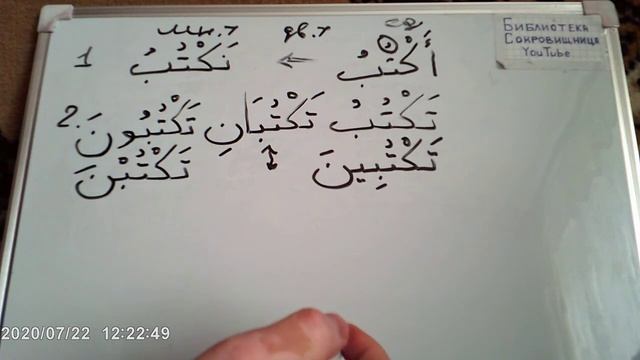 мн.ч дв.ч ед
Библиотека
Сокровищница
YouTube
أَكْتُبُ ← نَكْتُبُ 1
2. تَكْتُبُ تَكْتُبَانِ تَكْتُبُونَ
تَكْتُبِينَ ↕ تَكْتُبْنَ
2020/07/22 12:22:49